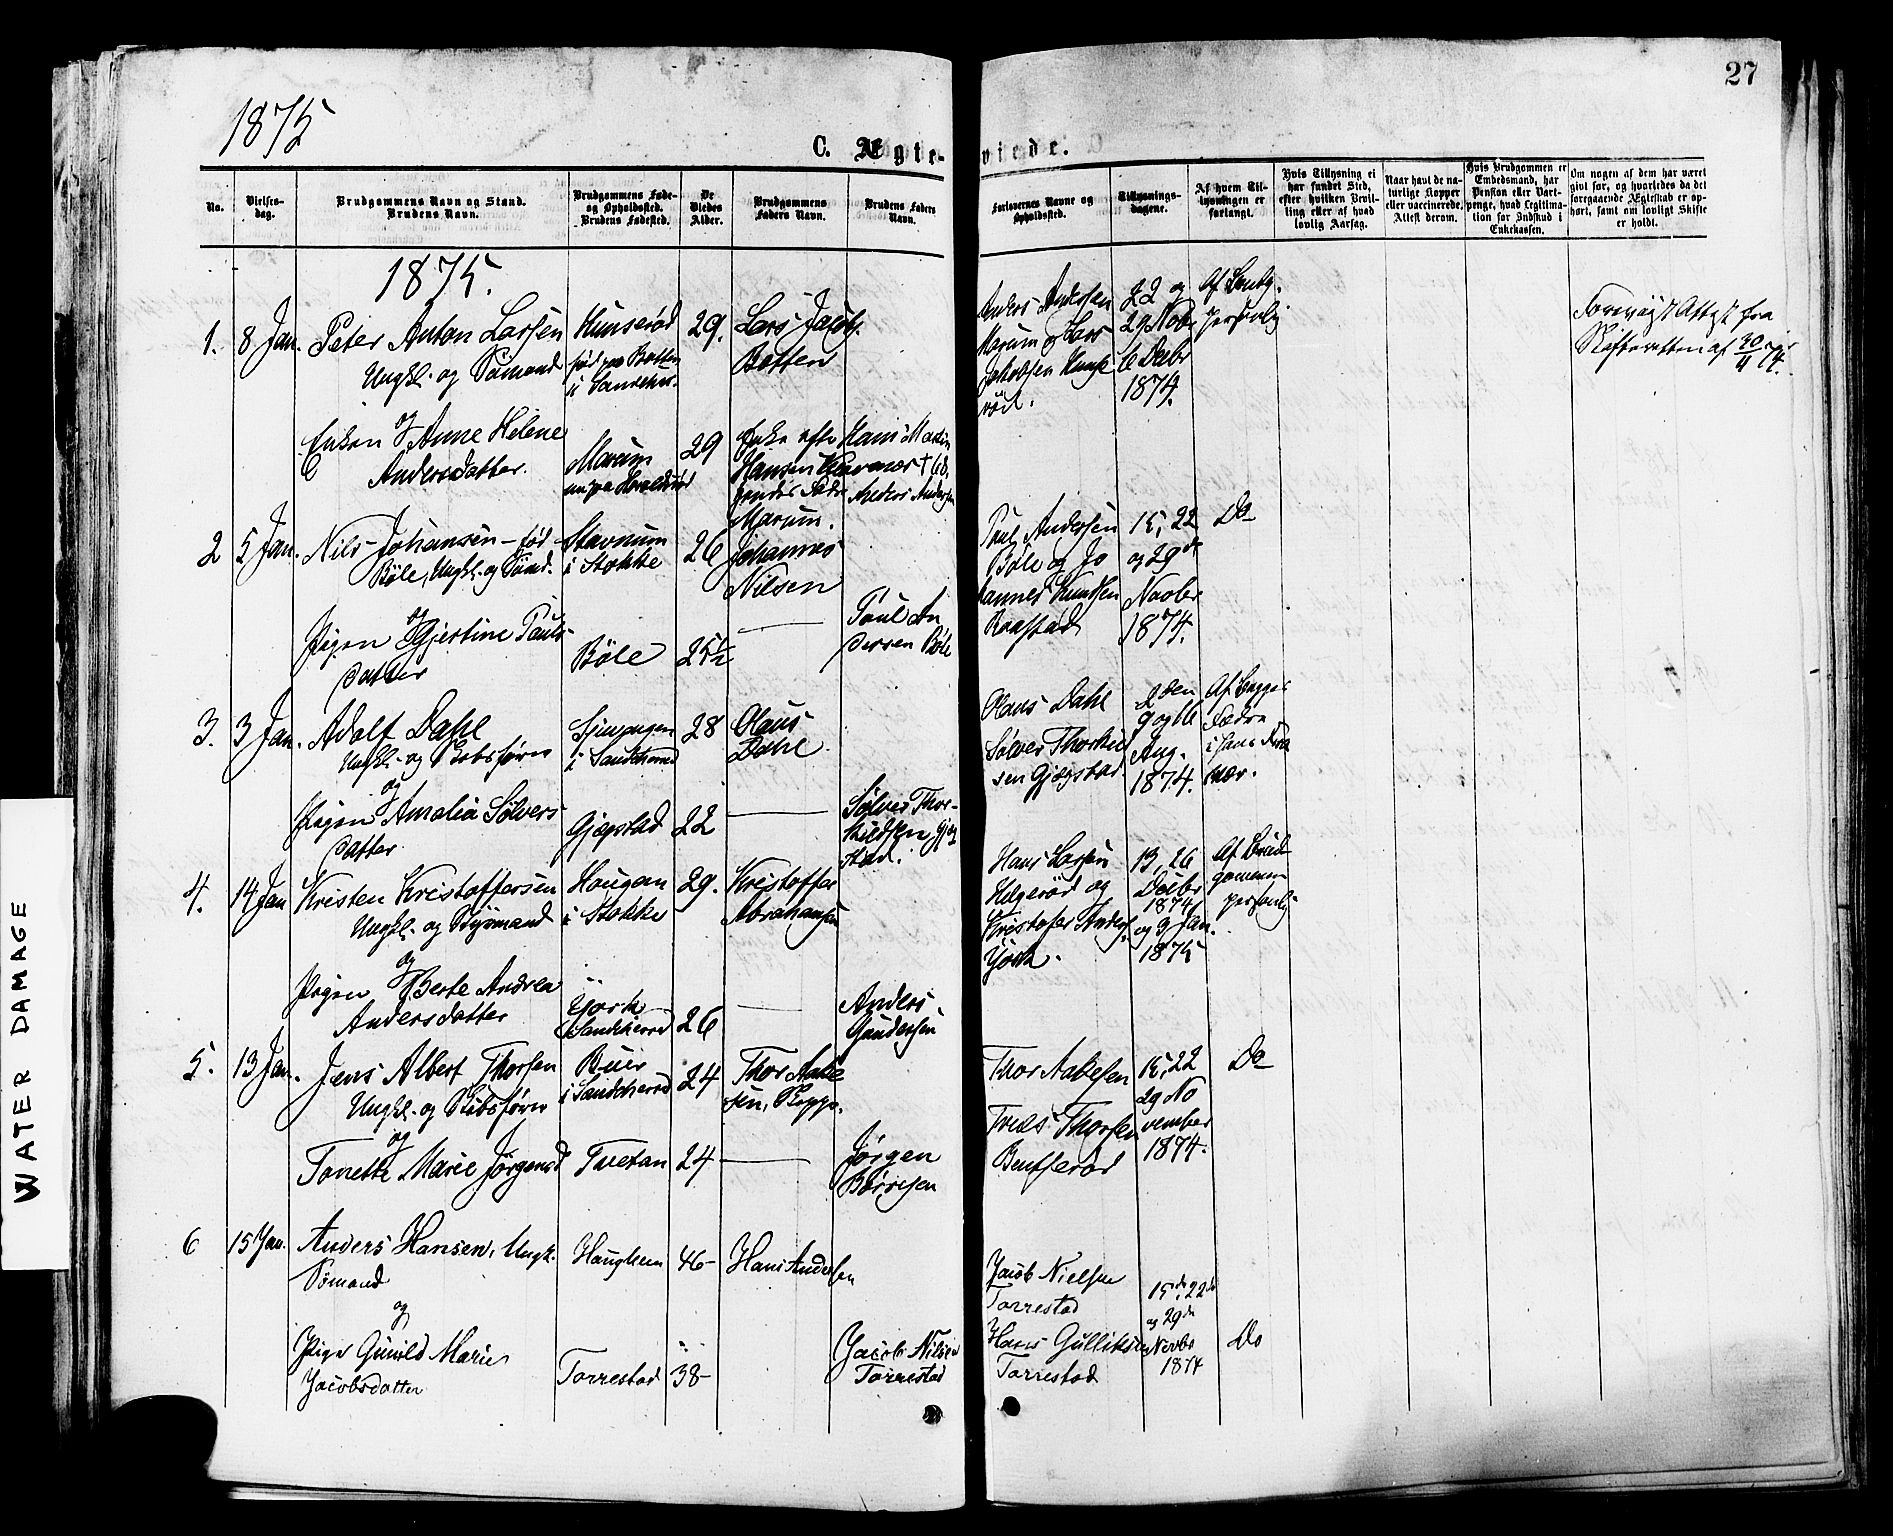 27
1875
C. Ægte-viede.
No.
Vielses-
dag.
Brudgommens Navn og Stand.
Brudens Navn.
Brudgommens Føde-
og Opholdssted.
Brudens Fødested.
De
Viedes
Alder.
Brudgommens
Faders Navn.
Brudens Faders
Navn.
Forlovernes Navne og
Opholdssted.
Tillysnings-
dagene.
Af hvem Til-
lysningen er
forlangt.
Hvis Tillysning ei
har fundet Sted,
efter hvilken Bevil-
ling eller af hvad
lovlig Aarsag.
Naar havt de na-
turlige Kopper
eller vaccinerede.
Attest derom.
Hvis Brudgommen er
Embedsmand, har
Pension eller Vart-
penge, hvad Legitima-
tion for Indskud i
Enkekassen.
Om nogen af dem har været
givt før, og hvorledes da det
foregaaende Ægteskab er op-
hørt, samt om lovligt Skifte
er holdt.
1875.
1. 8 Jan. Peter Anton Larsen
Ungkl. og Sømand
Hunserød
født paa Botten
i Sandeher.
29.
Lars Jacobs.
Botten
Anders Andersen
Marum og Lars
Jakobsen Hunse
rød.
22 og
29 Nobr
6 Decbr
1874.
Af Brudg.
personlig
Forevist Attest fra
Skifteretten af
og
Enken Anne Helene
Andersdatter.
Marum
29
Enke efter Hans Martin
Hansen
Fader Anders Andersen
Marum.
2 5 Jan. Nils Johansen - fød
Bøle, Ungkl. og Sømd.
Stavnum
i Stokke
26
Johannes
Nilsen
Paul Andersen
Bøle og Jo
hannes Knudsen
Raastad
15, 22
og 29de
Novbr
1874.
Do
og
Pigen Gjertine Pauls-
datter
Bøle
25½
Paul An
dersen Bøle
3. 3 Jan. Adolf Dahl
Ungkl. og Skibsfører
i Sandeherred
28
Olaus
Dahl.
Olaus Dahl
Sølver Thorkild
sen Gjøgstad.
2den
9 og 16
Aug.
1874.
Af begges
Fædre
og
Pigen Amalia Sølvers
datter.
Gjøgstad
22
Sølver Thor-
kildsen Gjøg
stad.
4. 14 Jan Kristen Kristoffersen
Ungkl. og Styrmand
Haugan
i Stokke
29.
Kristoffer
Abrahamsen
Hans Larsen
Helgerød og
Kristofer Anders.
York.
13, 26
Decbr
1874
og 9 Jan.
1875
Af Brud
gommen
personlig
og
Pigen Berte Andrea
Andersdatter
York
Sandeherred
26
Anders
Gundersen
5. 13 Jan. Jens Albert Thorsen
Ungkl. og Skibsfører
Buer
i Sandeherred
24
Thor Aabe
sen,
Thor Aabesen
Thorsen
Bentserød
15, 22
29 No
vember
1874.
Do
og
Tonette Marie Jørgensd
Tvetan
24
Jørgen
Børresen
6 15 Jan. Anders Hansen, Ungk.
Sømand
Haughem
46-
Hans Andersen
Jacob Nielsen
Torrestad
Hans Gulliksen
Torrestad
15de, 22de
og 29de
Novbr
1874
Do
og
Pige Gunild Marie
Jacobsdatter
Torrestad
38-
Jacob Nilsen
Torrestad
WATER DAMAGE